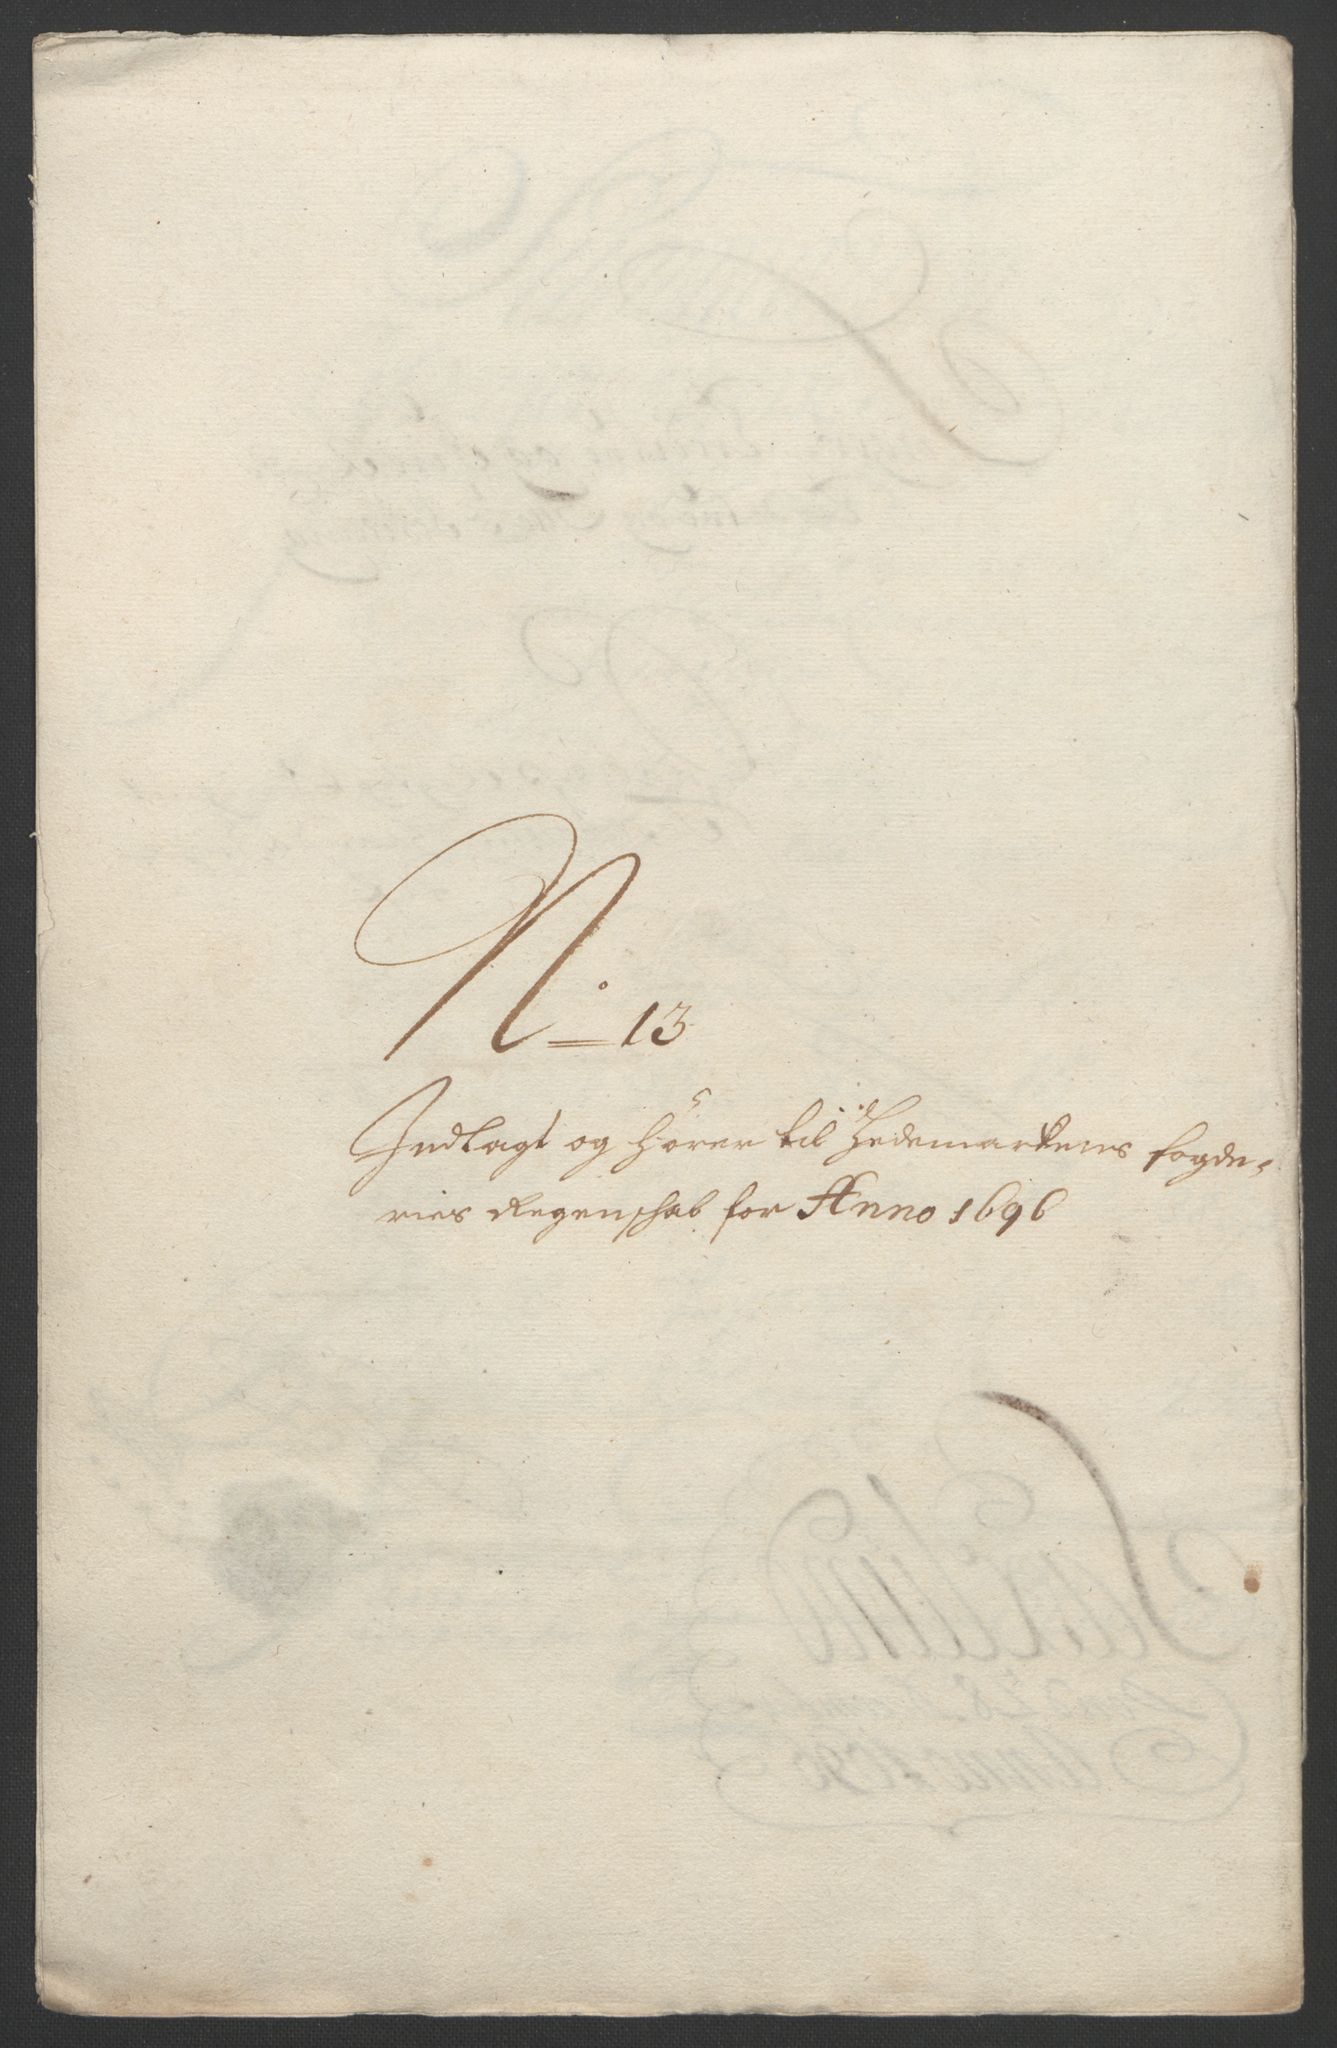 No 13
Indlagt og hörer til Hedemarkens fogde-
ries Regenschab for Anno 1696